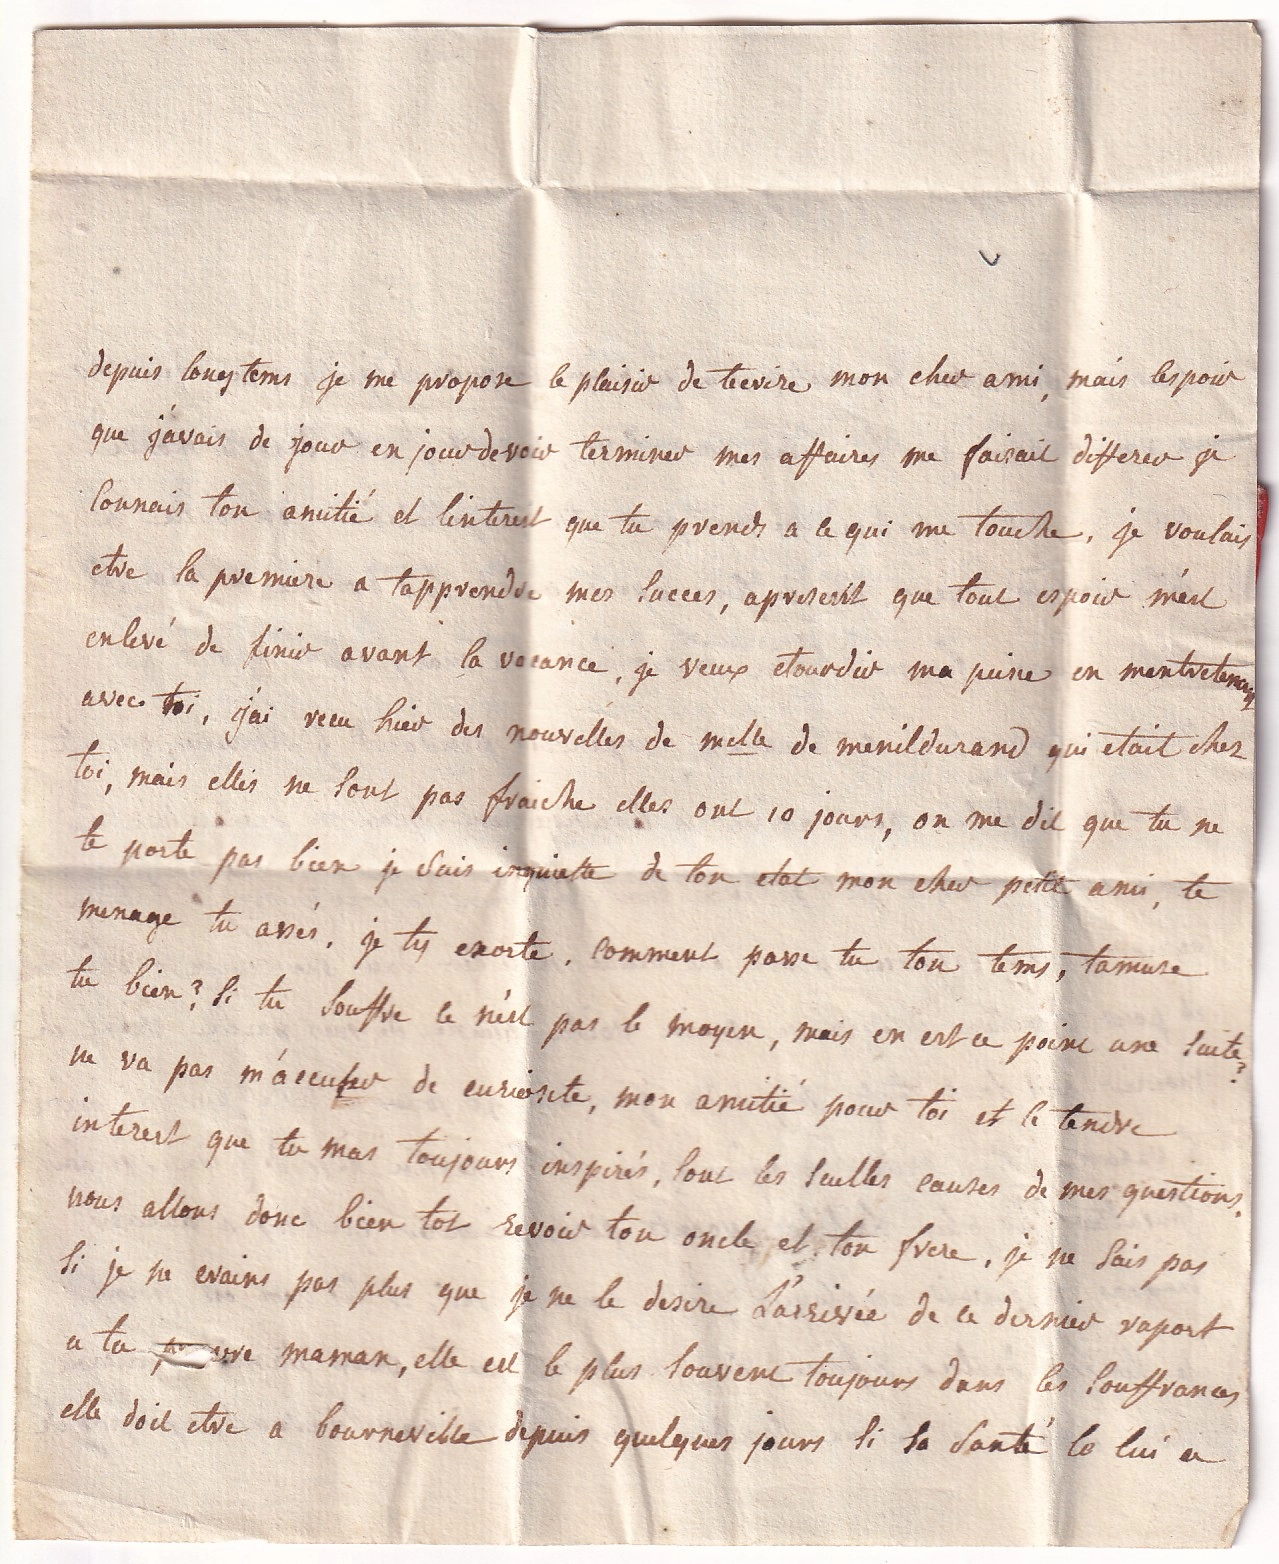 depuis longtems je me propose le plaisir de tecrire mon cher ami, mais lespoir
que j'avais de jour en jour devoir terminer mes affaires me faisait differer je
connais ton amitié et linterest que tu prends a ce qui me touche, je voulais
etre la premiere a tapprendre mes succes, apresent que tout espoir m'est
enlevé de finir avant la vacance, je veux etourdir ma peine en mentretenant
avec toi, j'ai recu hier des nouvelles de melle de menildurand qui etait chez
toi, mais elles ne sont pas fraiche elles ont 10 jours, on me dit que tu ne
te porte pas bien je suis inquiette de ton etat mon cher petit ami, te
menage tu assés, je ty exorte, comment passe tu ton tems, tamuse
tu bien? si tu souffre ce n'est pas le moyen, mais en est ce point une suite?
ne va pas m'accuser de curiosite, mon amitié pour toi et le tendre
interest que tu mas toujours inspirés, sont les seulles causes de mes questions.
nous allons donc bien tot revoir ton oncle et ton frere, je ne sais pas
si je ne crains pas plus que je ne le desire l'arrivée de ce dernier raport
a ta pauvre maman, elle est le plus souvent toujours dans les souffrances
elle doit etre a bourneville depuis quelques jours si sa santé le lui a